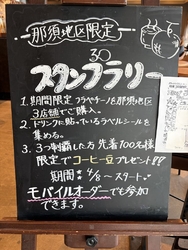 那須地区限定
30
スタンプラリー
1. 期間限定 フラペチーノを那須地区
3店舗でご購入。
2. ドリンクに貼っているラベルシールを
集める。
3. 3つ制覇した方 先着100名様
限定でコーヒー豆プレゼント!!
期間 4/8~スタート
モバイルオーダーでも参加
できます。